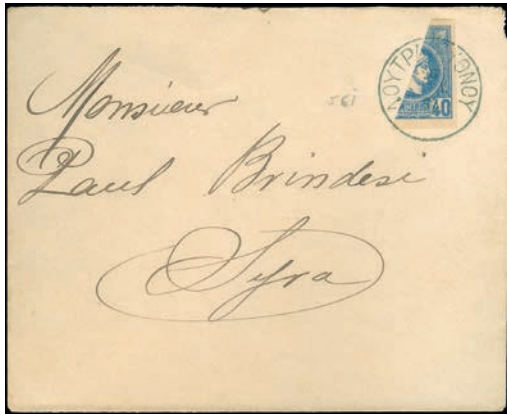 ΛΟΥΤΡ ΚΟΝΟΥ
40
Monsieur
Paul Brindesi
Syra